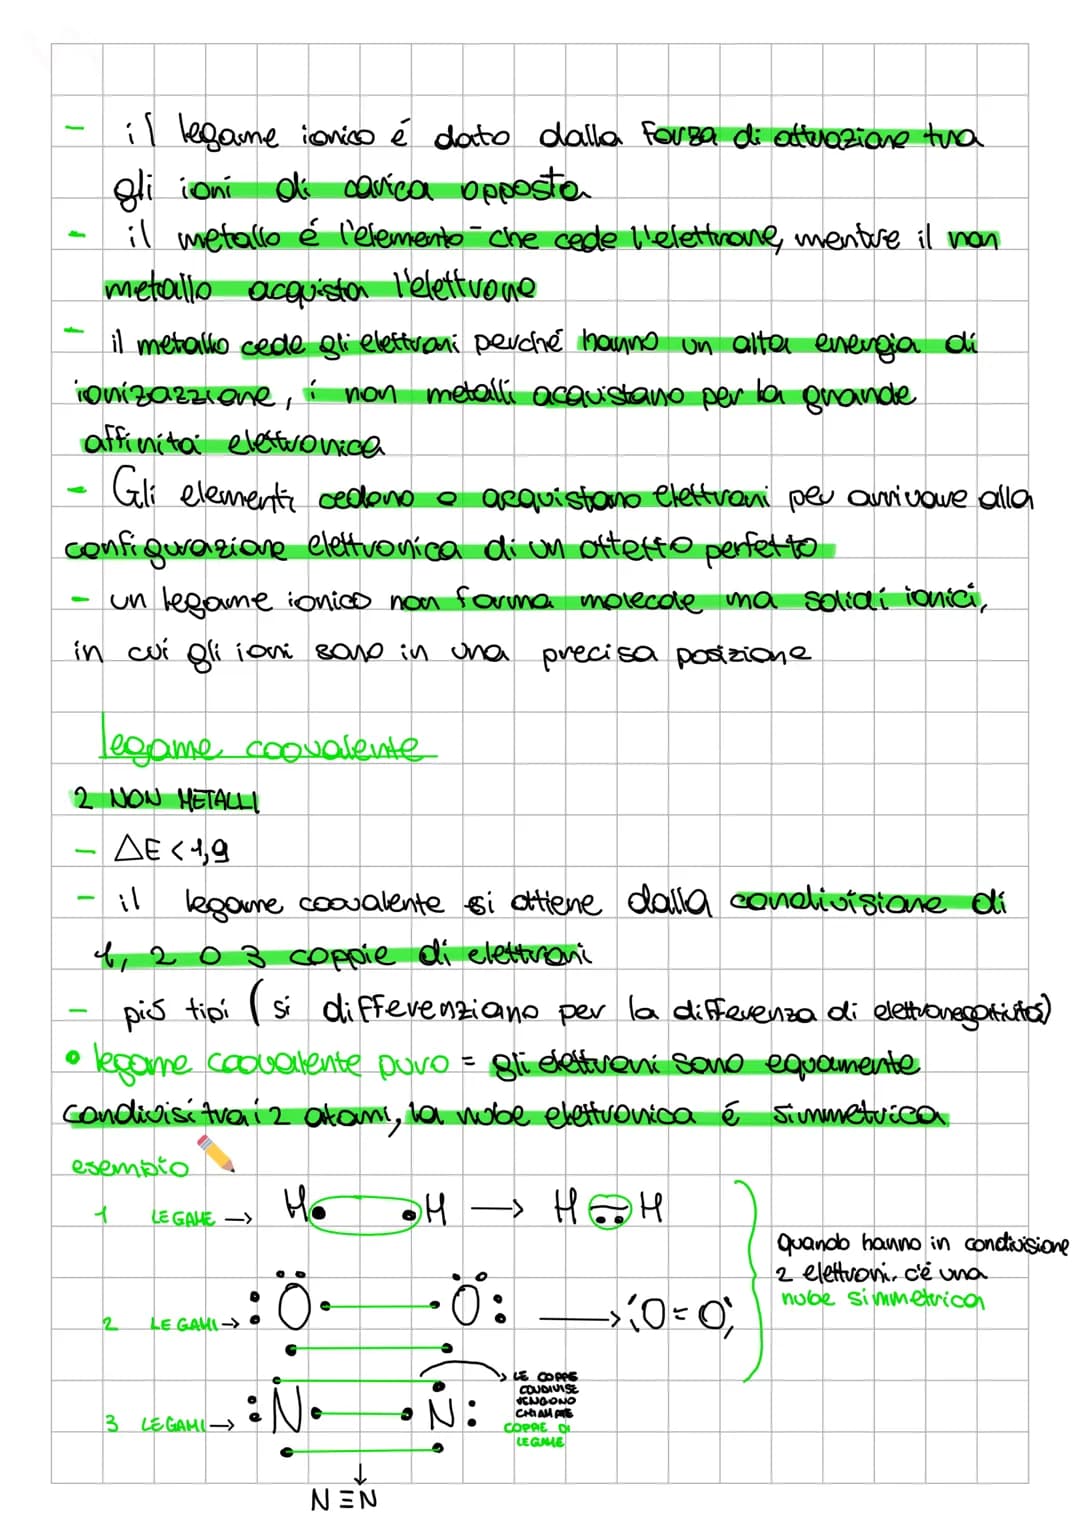 - il legame ionico é dato dalla forza di attrazione tra
gli ioni di carica opposta
- il metallo é l'elemento che cede l'elettrone, mentre il non
metallo acquista l'elettrone
- il metallo cede gli elettroni perché hanno un alta energia di
ionizazzione, i non metalli acquistano per la grande
affinità elettronica
- Gli elementi cedono o acquistano elettroni per arrivare alla
configurazione elettronica di un ottetto perfetto
- un legame ionico non forma molecole ma solidi ionici,
in cui gli ioni sono in una precisa posizione
legame coovalente
2 NON METALLI
- ΔE < 1,9
- il legame coovalente si ottiene dalla condivisione di
1, 2 o 3 coppie di elettroni
- più tipi (si differenziano per la differenza di elettronegatività)
• legame coovalente puro = gli elettroni sono equamente
condivisi tra i 2 atomi, la nube elettronica é simmetrica
esempio
1 LEGAME → H H → H H
Quando hanno in condivisione
2 elettroni, c'é una
nube simmetrica
2 LEGAMI → O O → O=O
LE COPPIE
CONDIVISE
VENGONO
CHIAMATE
COPPIE DI
LEGAME
3 LEGAMI → N N
N≡N